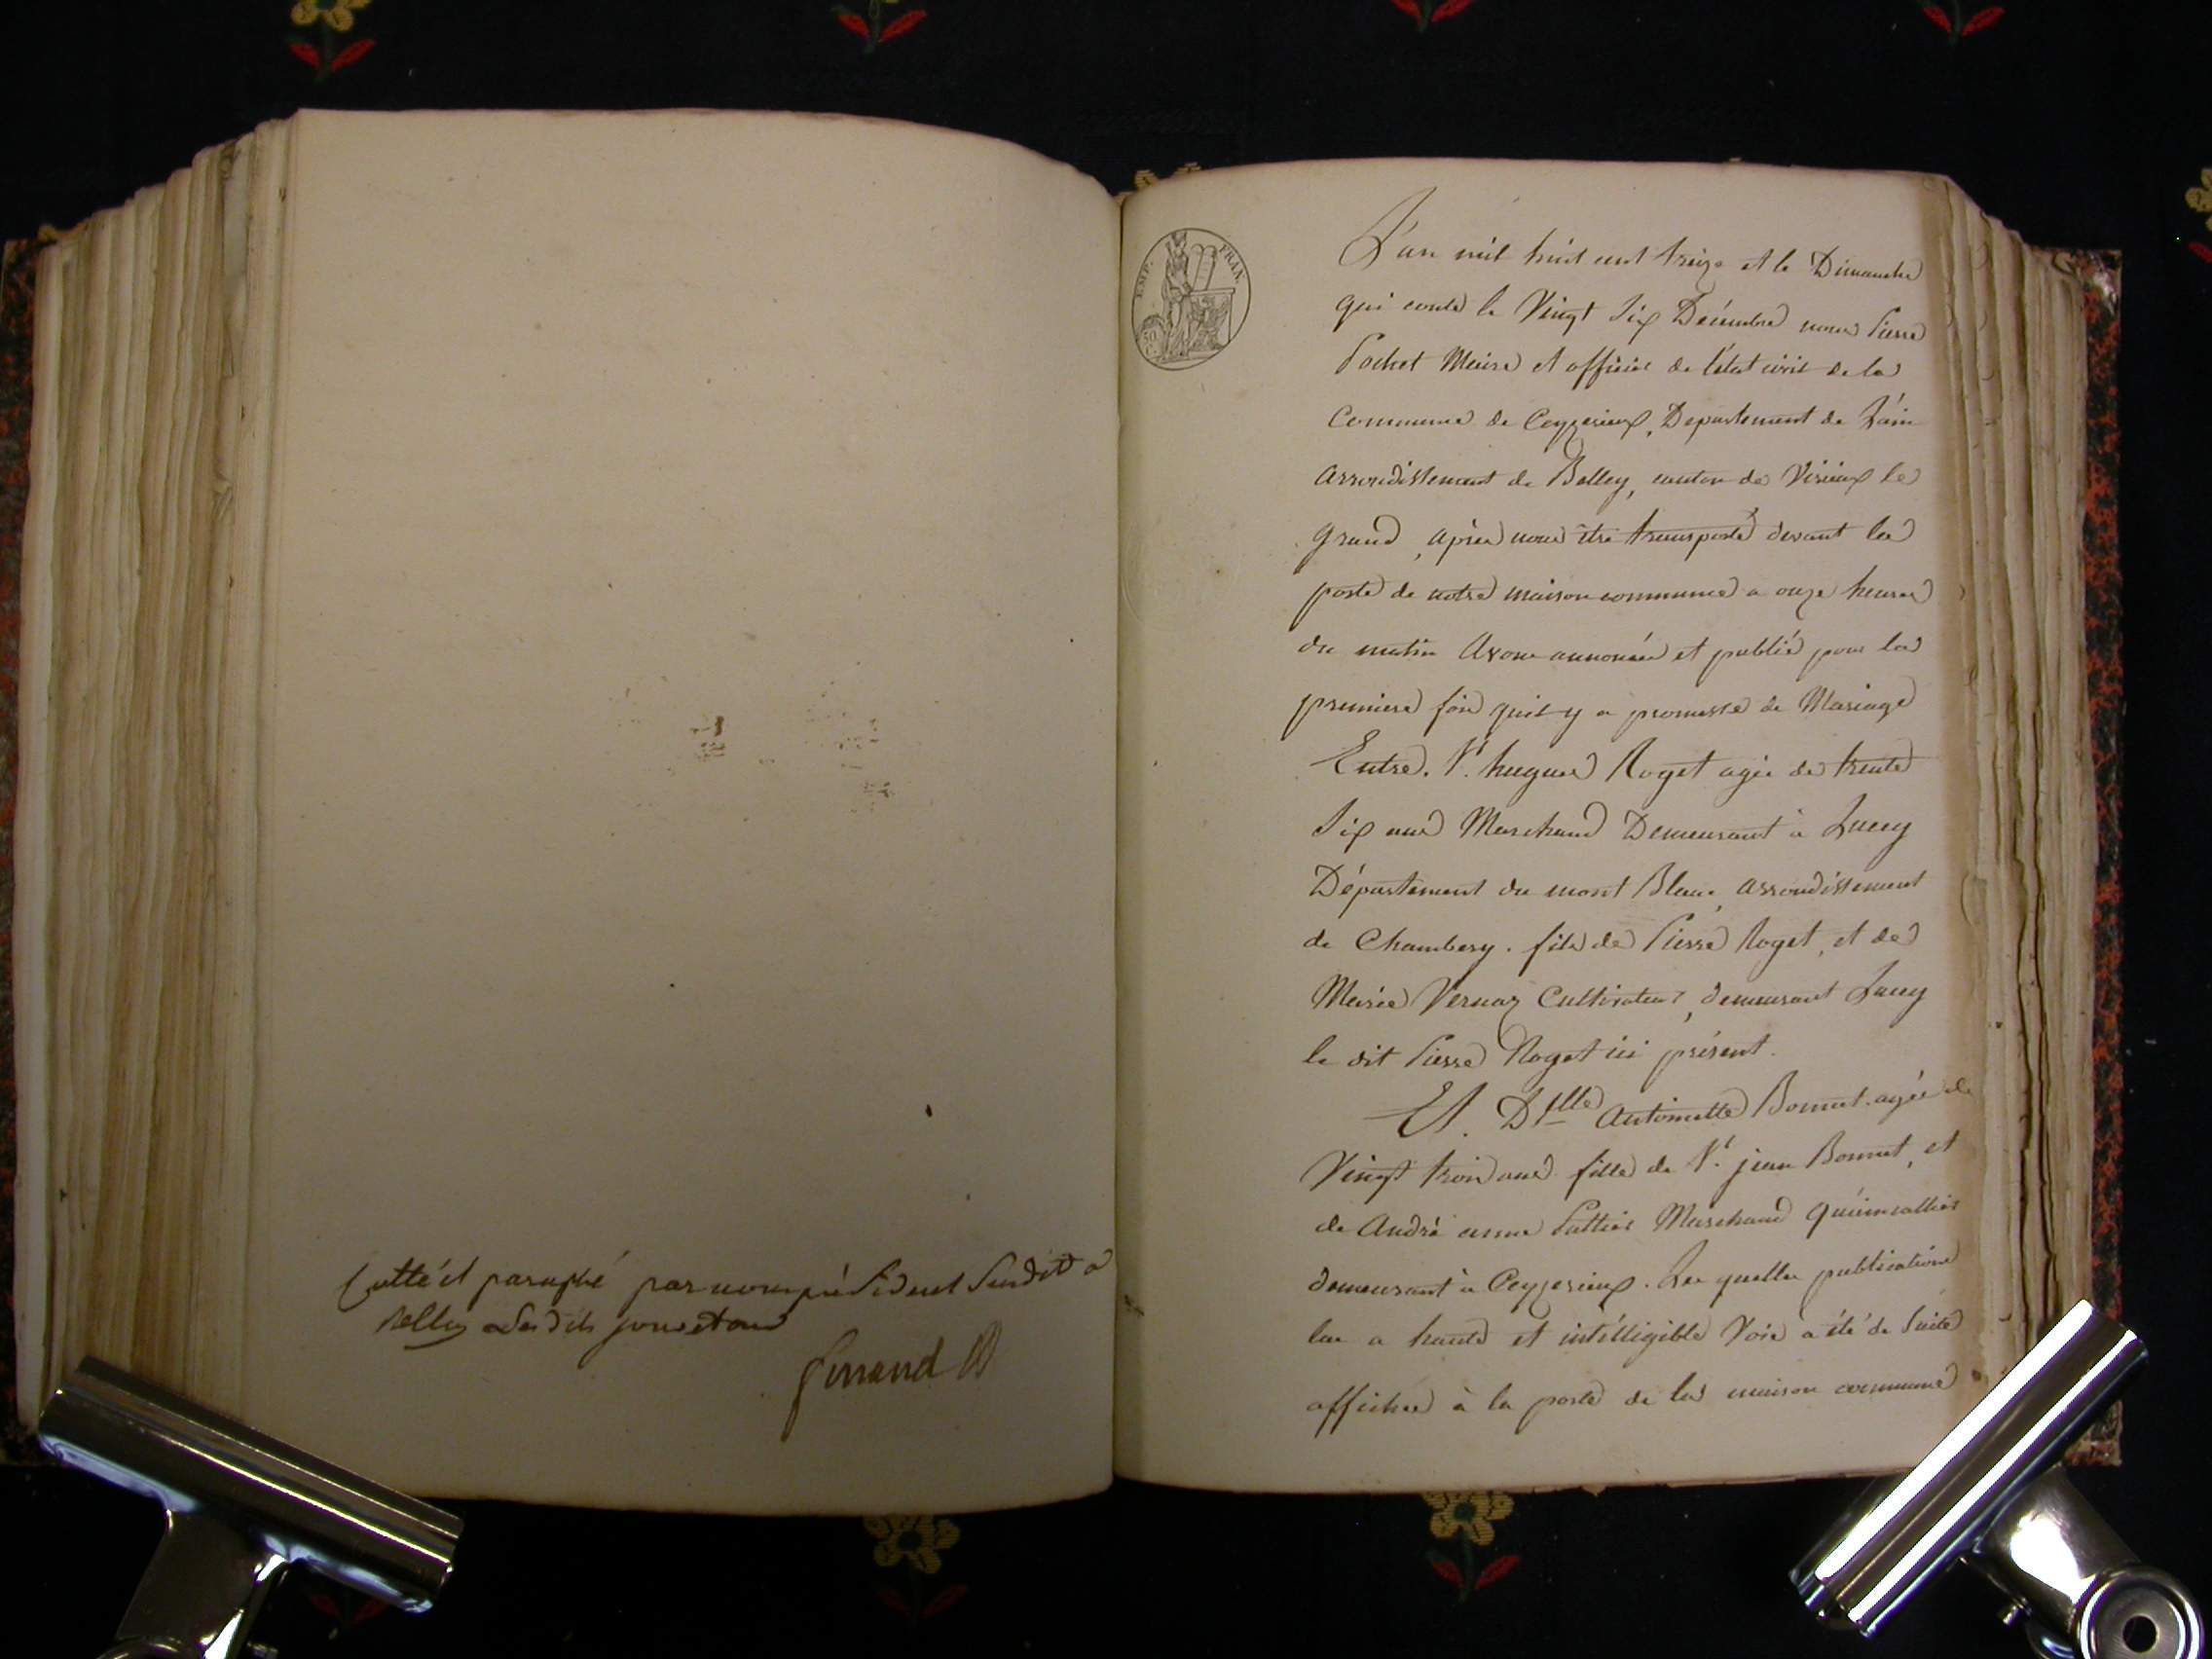 Cotté et paraphé par nous président susdit à
Belley les dits jour et an
Ferrand
EMP. FRAN.
50 C.
L'an mil huit cent treize et le Dimanche
qui conte le Vingt Six Décembre nous Pierre
Pochet Maire et officier de l'état civil de la
Commune de Ceyzerieux, Departement de L'ain
arrondissement de Belley, canton de Virieux le
grand, après nous être transporté devant la
porte de notre maison commune a onze heures
du matin avons annoncée et publié pour la
premiere fois quil y a promesse de Mariage
Entre. Sr. hugues Roget agée de trente
Six ans Marchand Demeurant à Lucey
Département du mont Blanc, arrondissement
de Chambery. fils de Pierre Roget, et de
Marie Vernaz Cultivateur, demeurant Lucey
le dit Pierre Roget ici présent.
Et. Dlle Antoinette Bonnet. agée de
Vingt trois ans fille de Sr. jean Bonnet, et
de André anne Marchand
demeurant à Ceyzerieux. Les quelles publications
lue a haute et intélligible Voix a été de Suite
affichée à la porte de la maison commune